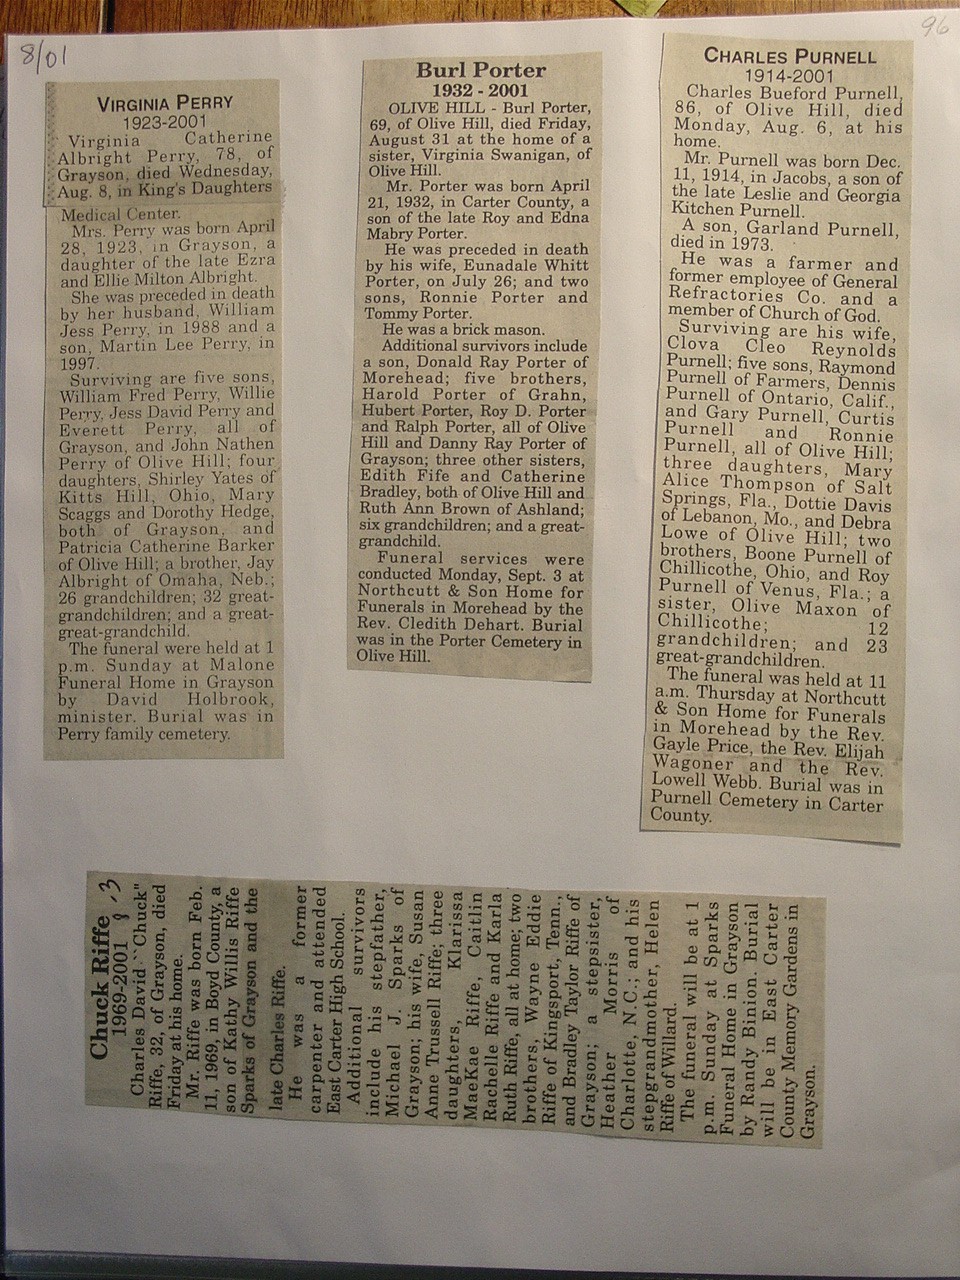 8/01
96
VIRGINIA PERRY
1923-2001
Virginia Catherine
Albright Perry, 78, of
Grayson, died Wednesday,
Aug. 8, in King's Daughters
Medical Center.
Mrs. Perry was born April
28, 1923, in Grayson, a
daughter of the late Ezra
and Ellie Milton Albright.
She was preceded in death
by her husband, William
Jess Perry, in 1988 and a
son, Martin Lee Perry, in
1997.
Surviving are five sons,
William Fred Perry, Willie
Perry, Jess David Perry and
Everett Perry, all of
Grayson, and John Nathen
Perry of Olive Hill; four
daughters, Shirley Yates of
Kitts Hill, Ohio, Mary
Scaggs and Dorothy Hedge,
both of Grayson, and
Patricia Catherine Barker
of Olive Hill; a brother, Jay
Albright of Omaha, Neb.;
26 grandchildren; 32 great-
grandchildren; and a great-
great-grandchild.
The funeral were held at 1
p.m. Sunday at Malone
Funeral Home in Grayson
by David Holbrook,
minister. Burial was in
Perry family cemetery.
Burl Porter
1932 - 2001
OLIVE HILL - Burl Porter,
69, of Olive Hill, died Friday,
August 31 at the home of a
sister, Virginia Swanigan, of
Olive Hill.
Mr. Porter was born April
21, 1932, in Carter County, a
son of the late Roy and Edna
Mabry Porter.
He was preceded in death
by his wife, Eunadale Whitt
Porter, on July 26; and two
sons, Ronnie Porter and
Tommy Porter.
He was a brick mason.
Additional survivors include
a son, Donald Ray Porter of
Morehead; five brothers,
Harold Porter of Grahn,
Hubert Porter, Roy D. Porter
and Ralph Porter, all of Olive
Hill and Danny Ray Porter of
Grayson; three other sisters,
Edith Fife and Catherine
Bradley, both of Olive Hill and
Ruth Ann Brown of Ashland;
six grandchildren; and a great-
grandchild.
Funeral services were
conducted Monday, Sept. 3 at
Northcutt & Son Home for
Funerals in Morehead by the
Rev. Cledith Dehart. Burial
was in the Porter Cemetery in
Olive Hill.
CHARLES PURNELL
1914-2001
Charles Bueford Purnell,
86, of Olive Hill, died
Monday, Aug. 6, at his
home.
Mr. Purnell was born Dec.
11, 1914, in Jacobs, a son of
the late Leslie and Georgia
Kitchen Purnell.
A son, Garland Purnell,
died in 1973.
He was a farmer and
former employee of General
Refractories Co. and a
member of Church of God.
Surviving are his wife,
Clova Cleo Reynolds
Purnell; five sons, Raymond
Purnell of Farmers, Dennis
Purnell of Ontario, Calif.,
and Gary Purnell, Curtis
Purnell and Ronnie
Purnell, all of Olive Hill;
three daughters, Mary
Alice Thompson of Salt
Springs, Fla., Dottie Davis
of Lebanon, Mo., and Debra
Lowe of Olive Hill; two
brothers, Boone Purnell of
Chillicothe, Ohio, and Roy
Purnell of Venus, Fla.; a
sister, Olive Maxon of
Chillicothe; 12
grandchildren; and 23
great-grandchildren.
The funeral was held at 11
a.m. Thursday at Northcutt
& Son Home for Funerals
in Morehead by the Rev.
Gayle Price, the Rev. Elijah
Wagoner and the Rev.
Lowell Webb. Burial was in
Purnell Cemetery in Carter
County.
Chuck Riffe
1969-2001
Charles David "Chuck"
Riffe, 32, of Grayson, died
Friday at his home.
Mr. Riffe was born Feb.
11, 1969, in Boyd County, a
son of Kathy Willis Riffe
Sparks of Grayson and the
late Charles Riffe.
He was a former
carpenter and attended
East Carter High School.
Additional survivors
include his stepfather,
Michael J. Sparks of
Grayson; his wife, Susan
Anne Trussell Riffe; three
daughters, Klarissa
MaeKae Riffe, Caitlin
Rachelle Riffe and Karla
Ruth Riffe, all at home; two
brothers, Wayne Eddie
Riffe of Kingsport, Tenn.,
and Bradley Taylor Riffe of
Grayson; a stepsister,
Heather Morris of
Charlotte, N.C.; and his
stepgrandmother, Helen
Riffe of Willard.
The funeral will be at 1
p.m. Sunday at Sparks
Funeral Home in Grayson
by Randy Binion. Burial
will be in East Carter
County Memory Gardens in
Grayson.